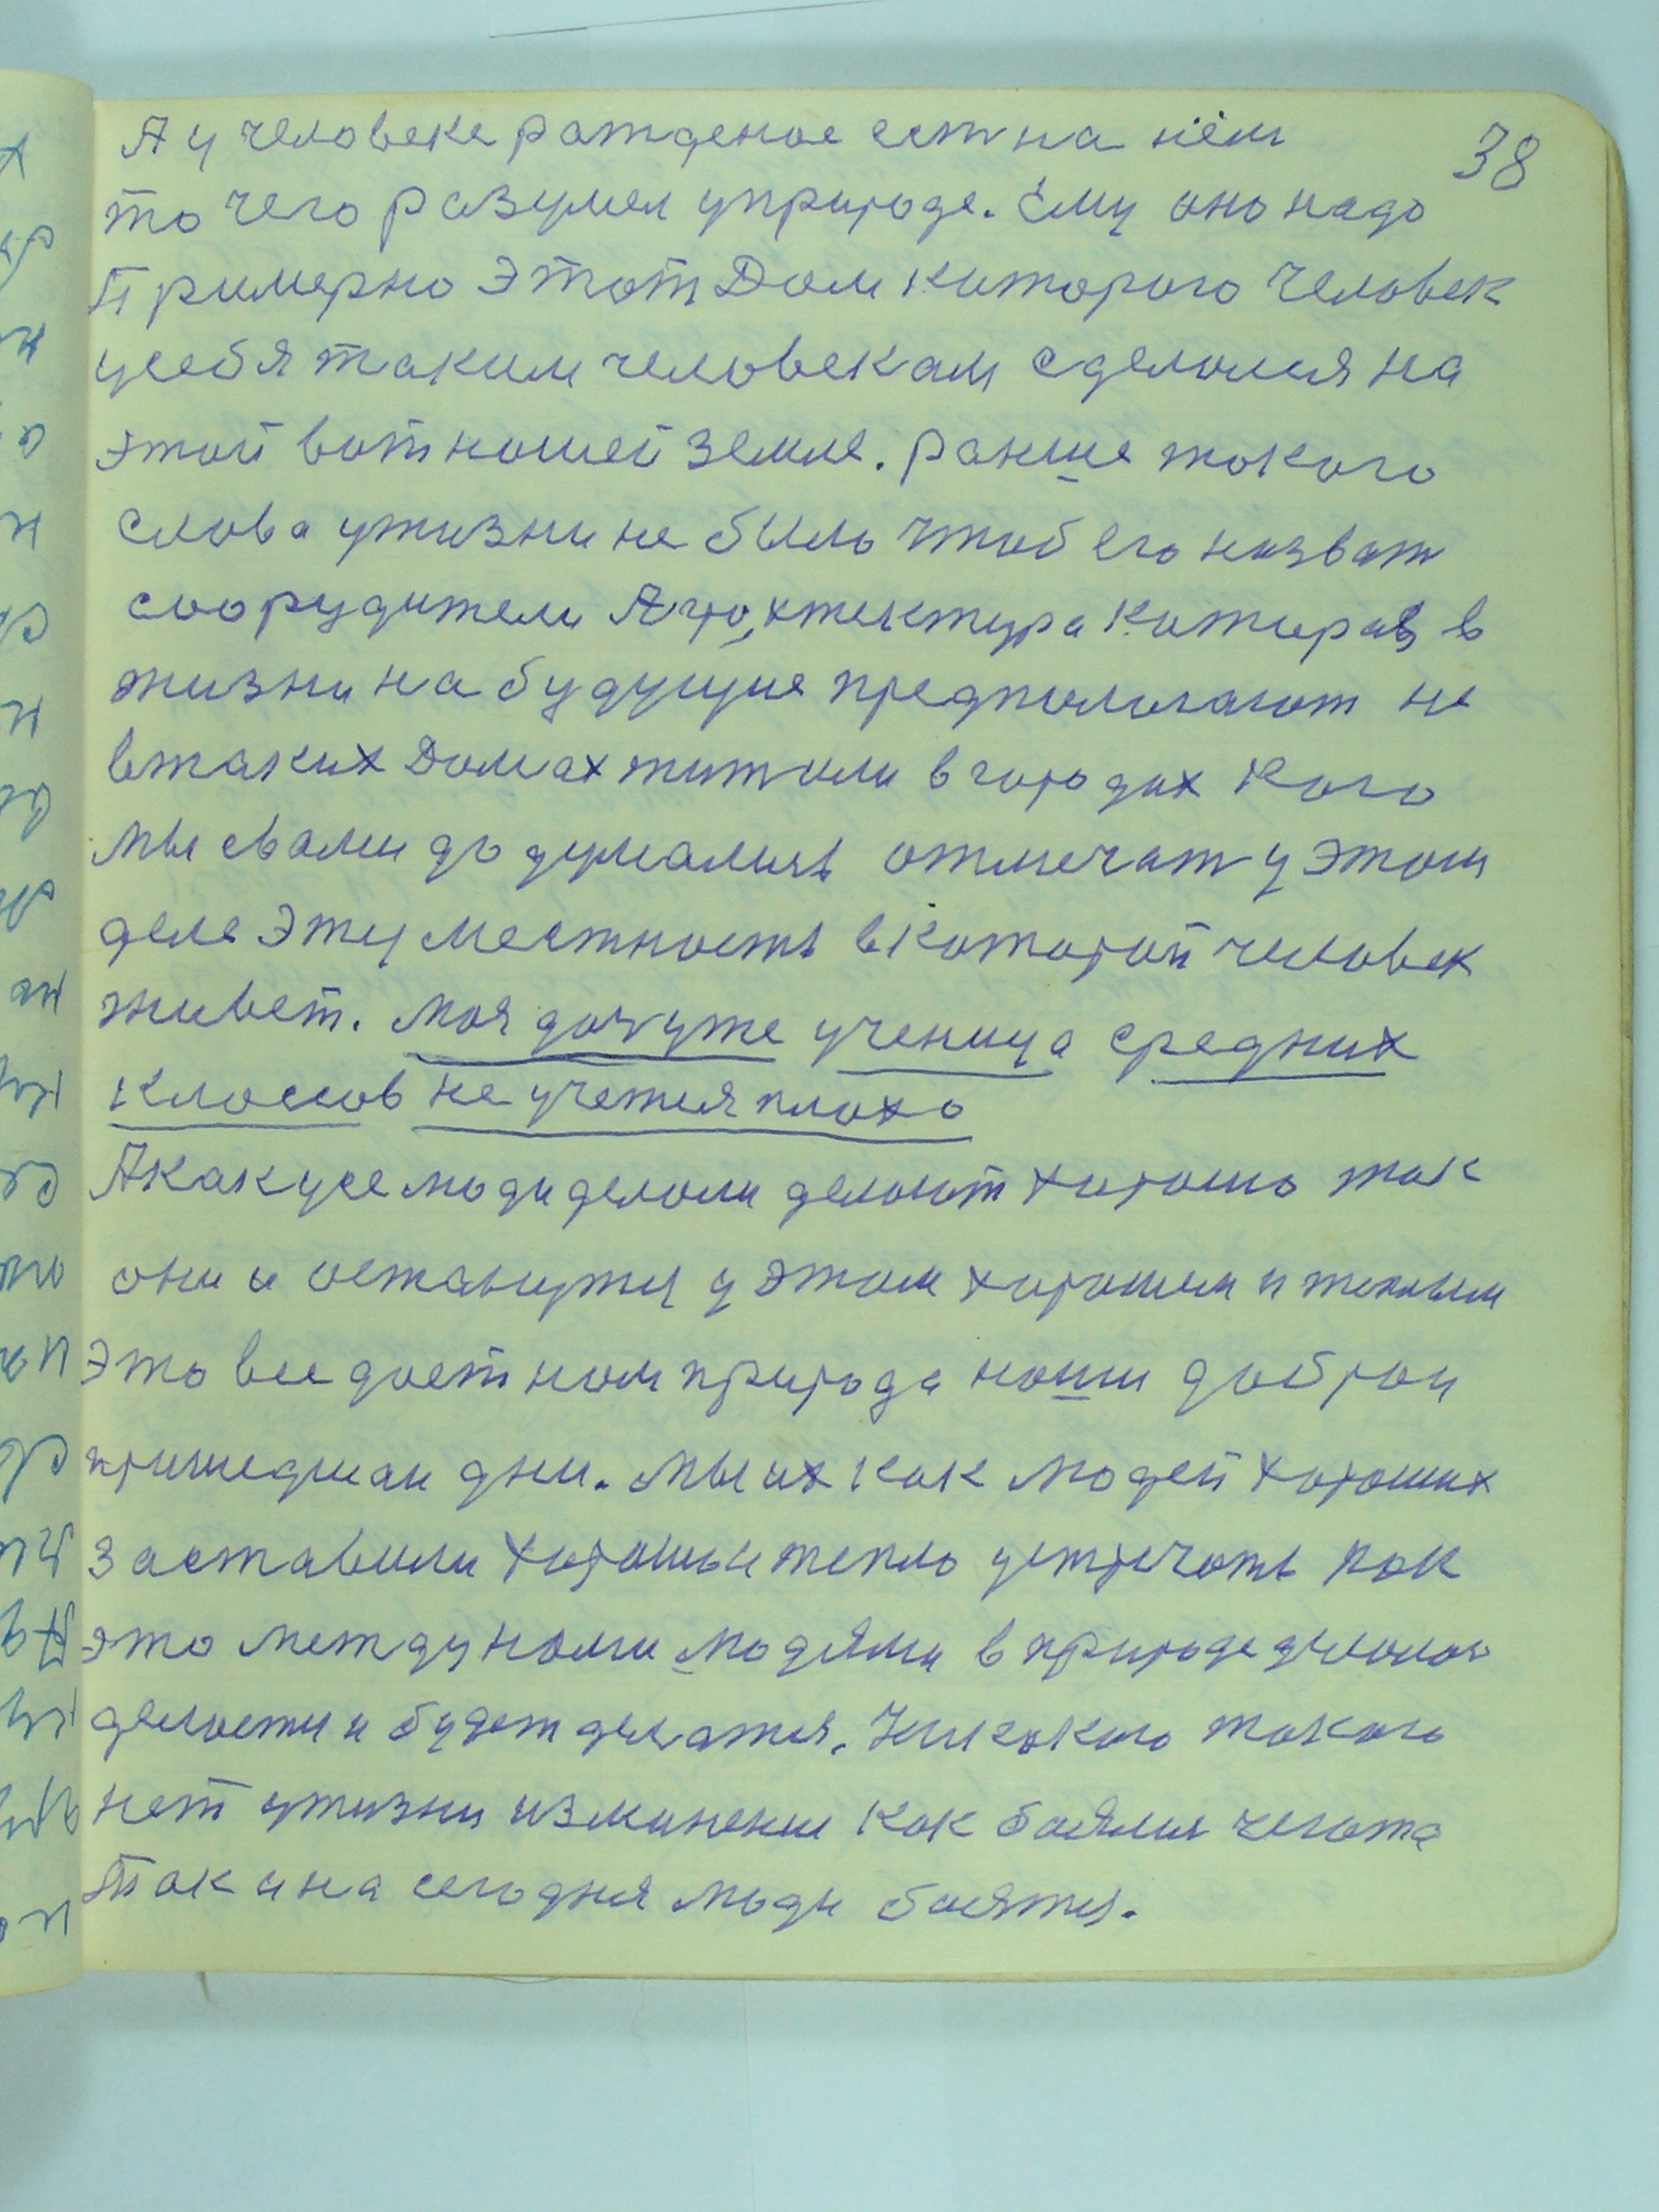 38
А у человеке рождение есть на нём
то чего разумел у природе. Ему оно надо
Примерно этот Дом которого человек
у себя таким человекам сделался на
этой вот нашей земле. Раньше такого
слова у жизни не было чтоб его назвать
соорудители Архтектура котирая в
жизни на будущие предпологают не
в таких Домах жить или в городах кого
мы свами до думались отмечать у этом
деле эту местность в которой человек
живет. Моя дочь уже ученица средних
классов не учется плохо
А как усе люди делали делают хорошо так
они и останутся у этом хорошем и теплым
это все дает нам природа наши доброи
пришедшаи дни. Мы их как людей хороших
заставили хорошо и тепло устречать как
это между нами людями в природе
делается и будет делатся. Никокого такого
нет у жизни изминении как боялися чегота
Так и на сегодня люди боятся.